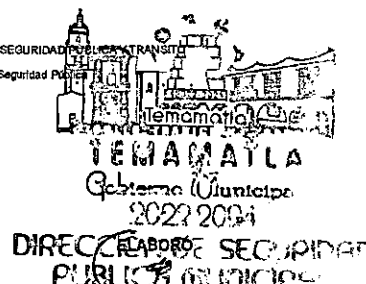 SEGURIDAD PÚBLICA Y TRANSITO
Seguridad Pública
Temamatla
TEMAMATLA
Gobierno Municipal
2022 2024
ELABORÓ
DIRECCIÓN DE SEGURIDAD
PÚBLICA MUNICIPAL